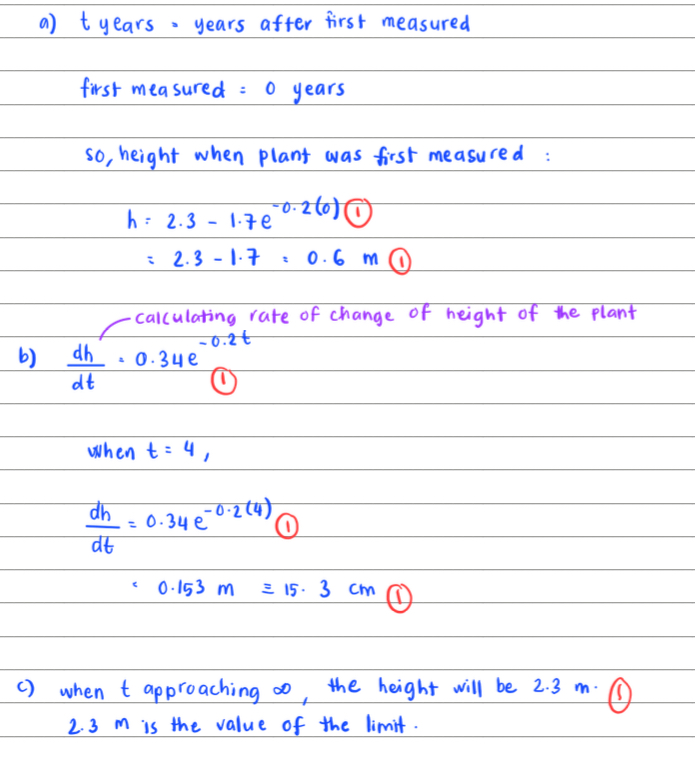 a) t years = years after first measured
first measured = 0 years
so, height when plant was first measured :
h = 2.3 - 1.7e^-0.2(0) ①
= 2.3 - 1.7 = 0.6 m ①
calculating rate of change of height of the plant
b) dh/dt = 0.34e^-0.2t ①
when t = 4,
dh/dt = 0.34e^-0.2(4) ①
= 0.153 m ≡ 15.3 cm ①
c) when t approaching ∞, the height will be 2.3 m. ①
2.3 m is the value of the limit.